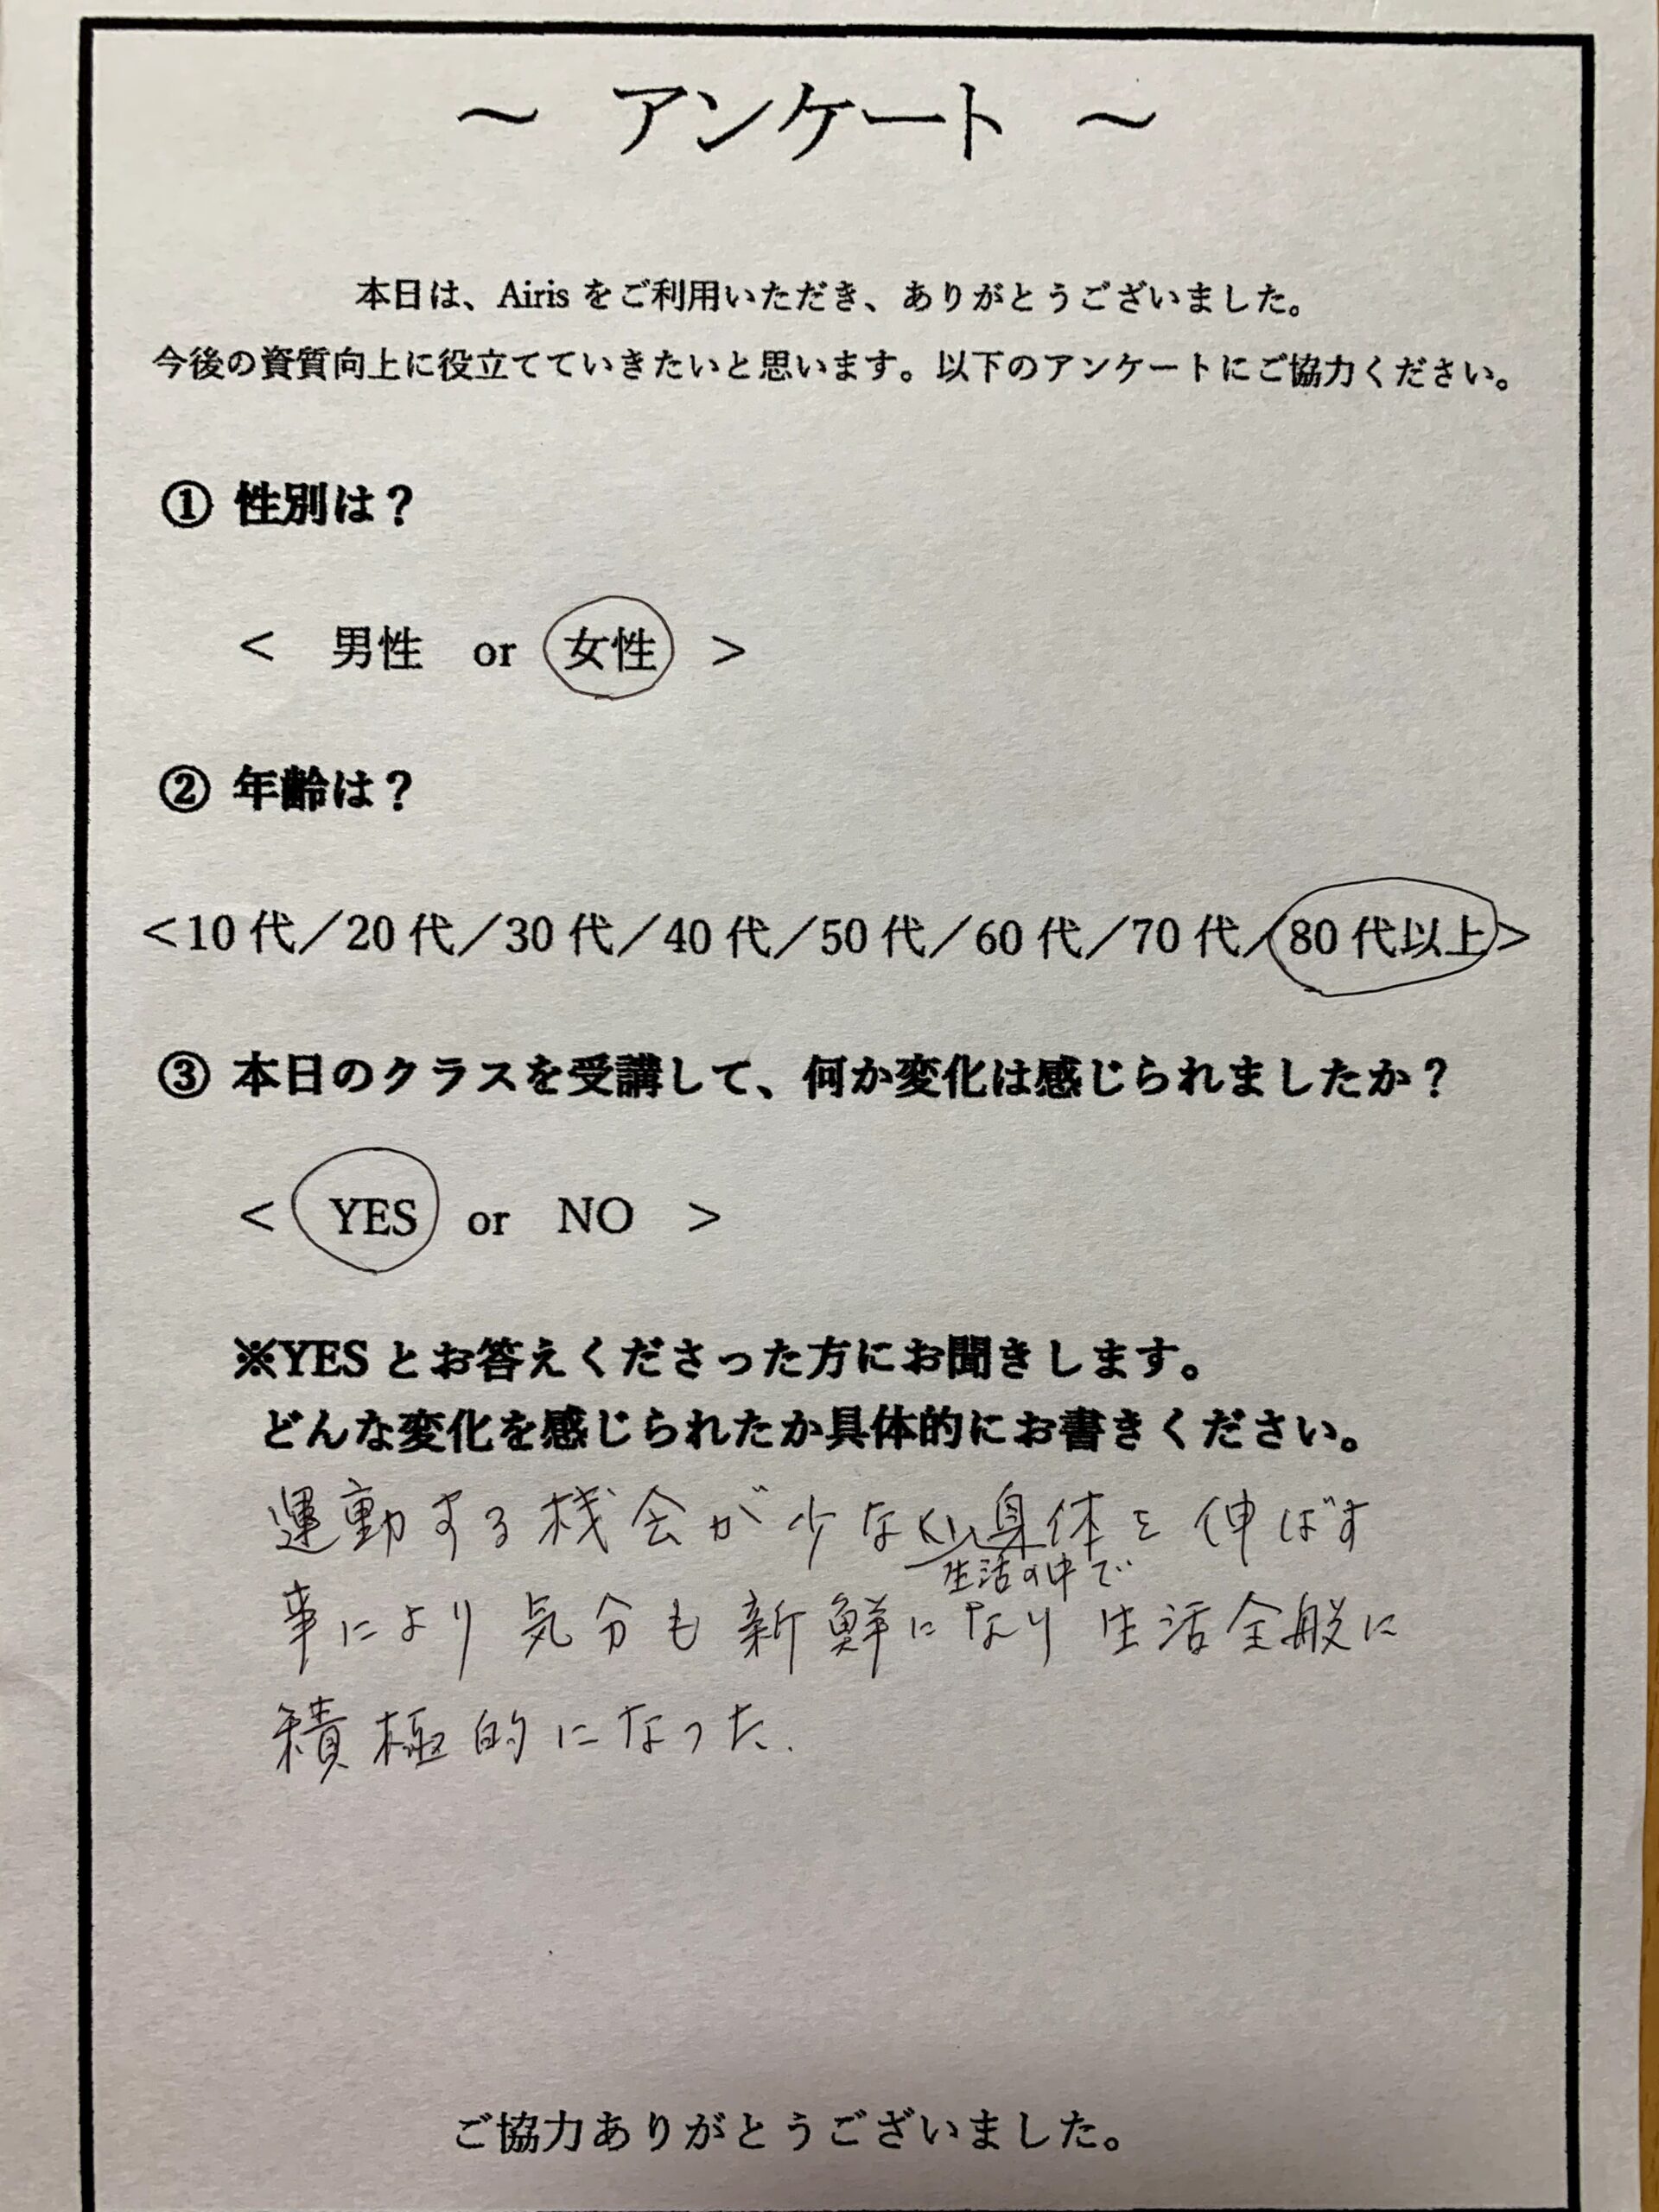 ～ アンケート ～
本日は、Airis をご利用いただき、ありがとうございました。
今後の資質向上に役立てていきたいと思います。以下のアンケートにご協力ください。
① 性別は？
＜ 男性 or 女性 ＞
② 年齢は？
＜10 代／20 代／30 代／40 代／50 代／60 代／70 代／80 代以上＞
③ 本日のクラスを受講して、何か変化は感じられましたか？
＜ YES or NO ＞
※YES とお答えくださった方にお聞きします。
どんな変化を感じられたか具体的にお書きください。
運動する機会が少ない身体を伸ばす
生活の中で
事により気分も新鮮になり生活全般に
積極的になった.
ご協力ありがとうございました。